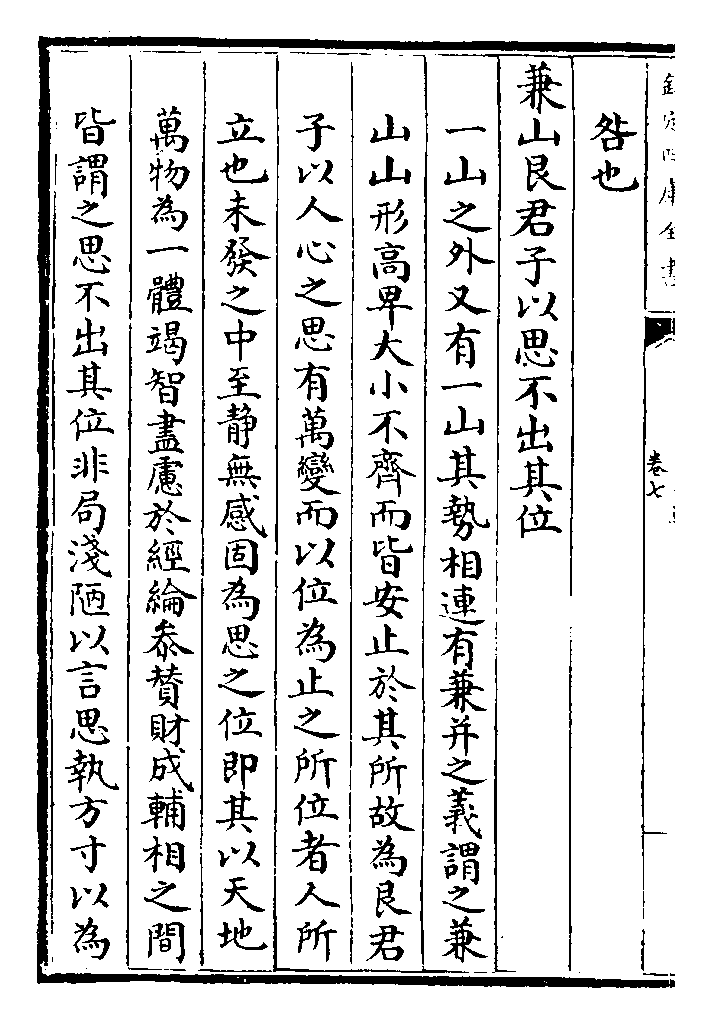 欽定四庫全書
卷七
咎也
兼山艮君子以思不出其位
一山之外又有一山其勢相連有兼并之義謂之兼
山山形高卑大小不齊而皆安止於其所故為艮君
子以人心之思有萬變而以位為止之所位者人所
立也未發之中至静無感固為思之位即其以天地
萬物為一體竭智盡慮於經綸叅賛財成輔相之間
皆謂之思不出其位非局淺陋以言思執方寸以為